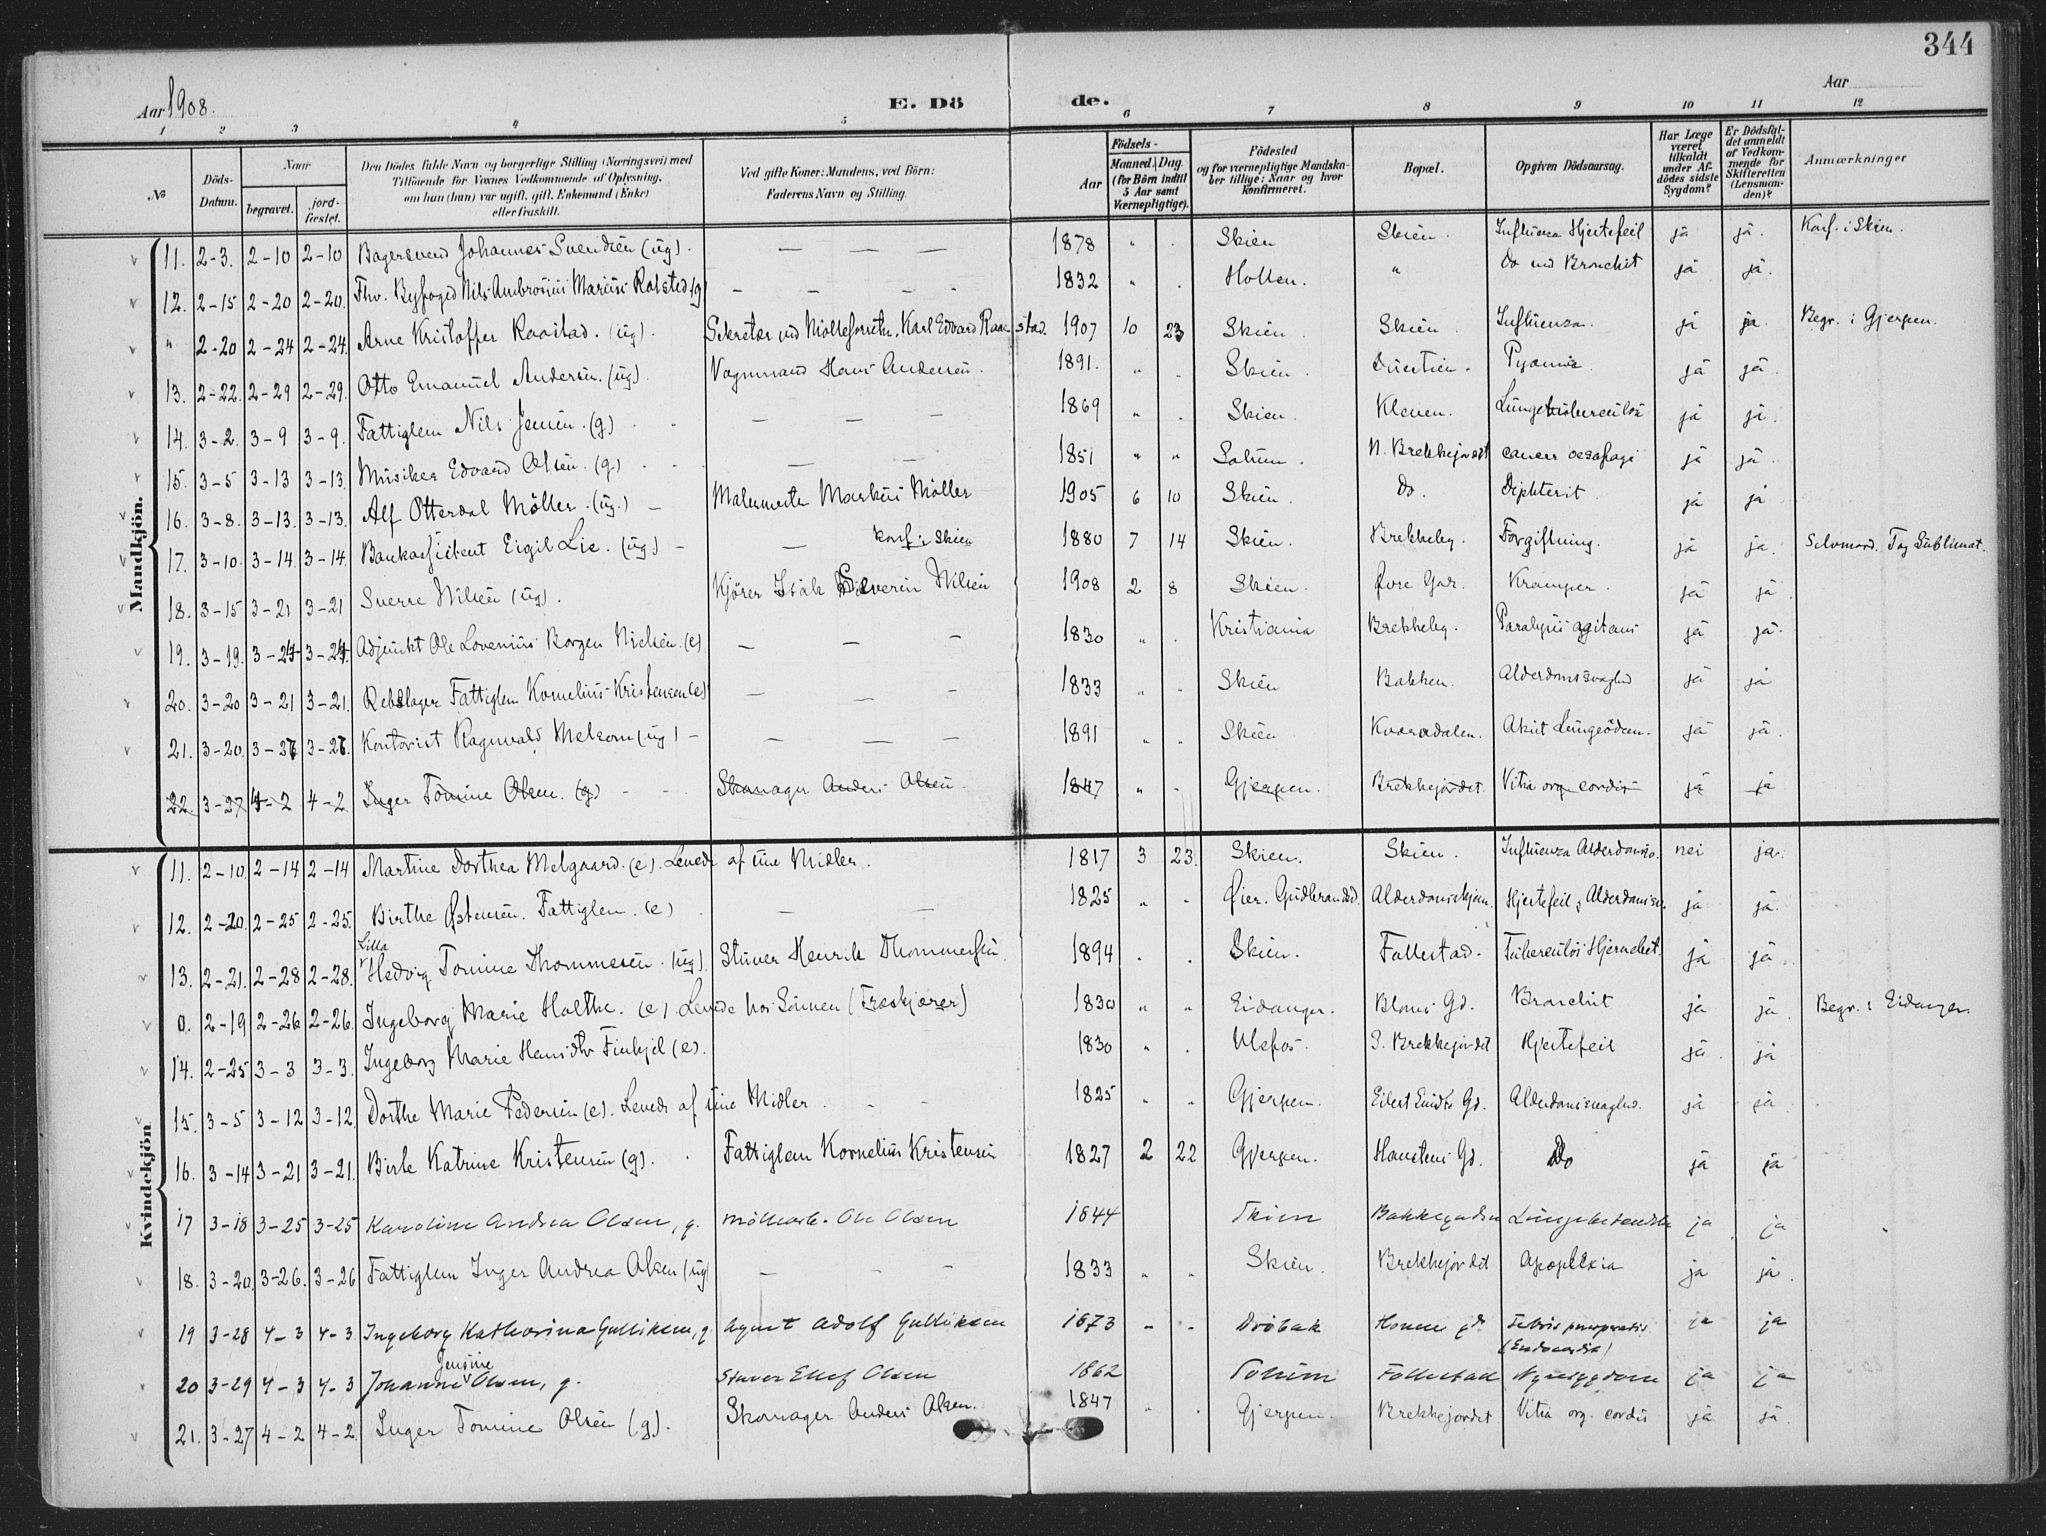 344
Aar 1908.
E. Dö de.
Aar
1 2 3 4 5 6 7 8 9 10 11 12
No
Döds-Datum.
Naar
begravet.
jord-fæstet.
Den Dödes fulde Navn og borgerlige Stilling (Næringsvei) med Tilföiende for Voxnes Vedkommende af Oplysning, om han (hun) var ugift, gift, Enkemand (Enke) eller fraskilt.
Ved gifte Koner: Mandens, ved Börn: Faderens Navn og Stilling.
Födsels-
Aar
Maaned. Dag. (for Börn indtil 5 Aar samt Værnepligtige).
Födested og for værnepligtige Mandskaber tillige: Naar og hvor konfirmeret.
Bopæl.
Opgiven Dödsaarsag.
Har Læge været tilkaldt under Afdödes sidste Sygdom?
Er Dödsfaldet anmeldt af Vedkommende for Skifteretten (Lensmanden)?
Anmærkninger
Mandkjön.
11. 2-3. 2-10 2-10 Bagersvend Johannes Svendsen (ug). — — — 1878 " . Skien Skien. Influenza Hjertefeil ja ja. Konf. i Skien.
12. 2-15 2-20 2-20. Fhv. Byfoged Nils Ambrosius Marius Ralsted (g) — — — - 1832 " . Holten. " Do med Bronchit ja ja.
" 2-20 2-24 2-24. Arne Kristoffer Raastad. (ug). Sekretær ved Karl Edvard Raastad. 1907 10 23 Skien. Skien. Influenza. ja ja. Begr. i Gjerpen.
13. 2-22. 2-29 2-29. Otto Emanuel Andersen. (ug). Vognmand Hans Andersen. 1891. " . Skien. Duestien. Pyæmie ja ja.
14. 3-2. 3-9 3-9. Fattiglem Nils Jensen. (g) — — — 1869 " . Skien. Kleven. Lungetuberculos ja ja.
15. 3-5 3-13 3-13. Musiker Edvard Olsen. (g.) — — 1851 " " Solum. N. Brekkejordet cancer oesofagi ja ja.
16. 3-8. 3-13. 3-13. Alf Otterdal Möller. (ug.) — Malermester Markus Möller 1905 6 10 Skien. Do. Diphterit ja ja
17. 3-10. 3-14. 3-14. Bankassistent Eigil Lie. (ug.) — — Konf. i Skien 1880 7 14 Skien. Brekkeby. Forgiftning. ja ja. Selvmord. Tog Sublimat.
18. 3-15 3-21 3-21 Sverre Nilsen (ug). Kjörer Isak Severin Nilsen 1908 2 8 Skien. Øvre Gar. Kramper. ja ja.
19. 3-19. 3-24 3-24. Adjunkt Ole Lovenius Borgen Nielsen. (e) — — - 1830 " . Kristiania Brekkeby. Paralysis agitans ja ja.
20. 3-20 3-21 3-21. Rebslager Fattiglem Kornelius Kristensen (e) — — 1833 " " Skien Bakken. Alderdomssvaghed ja ja
21. 3-20. 3-26 3-26. Kontorist Ragnvald Melsom (ug) — — — - 1891 " . Skien Kværndalen. Akut Lungeödem. ja ja.
22. 3-27 4-2 4-2 Inger Tomine Olsen. (g) - - Skomager Anders Olsen. 1847 " . Gjerpen. Brekkejordet. Vitia org cordis ja ja
Kvindekjön
11. 2-10. 2-14 2-14 Martine Dorthea Melgaard. (e). Levede af sine Midler. 1817 3 23. Skien. Skien. Influenza Alderdomssv. nei ja.
12. 2-20. 2-25 2-25. Birthe Østensen. Fattiglem. (e) — — 1825 " . Øier. Gudbrandsd. Alderdomshjem. Hjertefeil, Alderdomssv. ja ja.
13. 2-21. 2-28 2-28. Lilla Hedvig Tomine Thommesen. (ug). Stuver Henrik Thommesen. 1894 . . Skien. Follestad. Tuberculös Hjernebet. ja ja.
0. 2-19 2-26 2-26. Ingeborg Marie Holthe. (e). Levede hos Sönnen (Froskjörer) 1830 " " Eidanger. Bloms Gd. Bronchit ja ja. Begr. i Eidanger.
14. 2-25 3-3 3-3. Ingeborg Marie Hansdtr Finkjil (e). 1830 " . Ulefos. S. Brekkejordet Hjertefeil ja. ja
15. 3-5 3-12 3-12. Dorthe Marie Pedersen (e). Levede af sine Midler. - - 1825 " " Gjerpen. Eilert Sundts Gd. Alderdomssvaghed. ja ja.
16. 3-14 3-21 3-21. Birte Katrine Kristensen (g). Fattiglem Kornelius Kristensen 1827 2 22 Gjerpen. Haustens Gd. Do ja ja
17 3-18 3-25 3-25 Karoline Andrea Olsen, g. Möllearb. Ole Olsen 1844 Skien Bakkegaden Lungebetendelse ja ja
18. 3-20. 3-26. 3-26 Fattiglem Inger Andrea Olsen (ug) — — - 1833 " " Skien. Brekkejordet Apoplexia ja ja.
19 3-28 4-3 4-3 Ingeborg Katharina Gulliksen, g. Agent Adolf Gulliksen 1873 " " Dröbak gd. Febris puerperalis (Endocardit) ja ja
20 3-29 4-3 4-3 Johanne Jensine Olsen, g. Stuver Ellef Olsen 1862 Solum Follestad Nyresygdom ja ja
21. 3-27 4-2 4-2. Inger Tomine Olsen (g). Skomager Anders Olsen. 1847 " . Gjerpen. Brekkejordet. Vitia org. cordis ja ja.